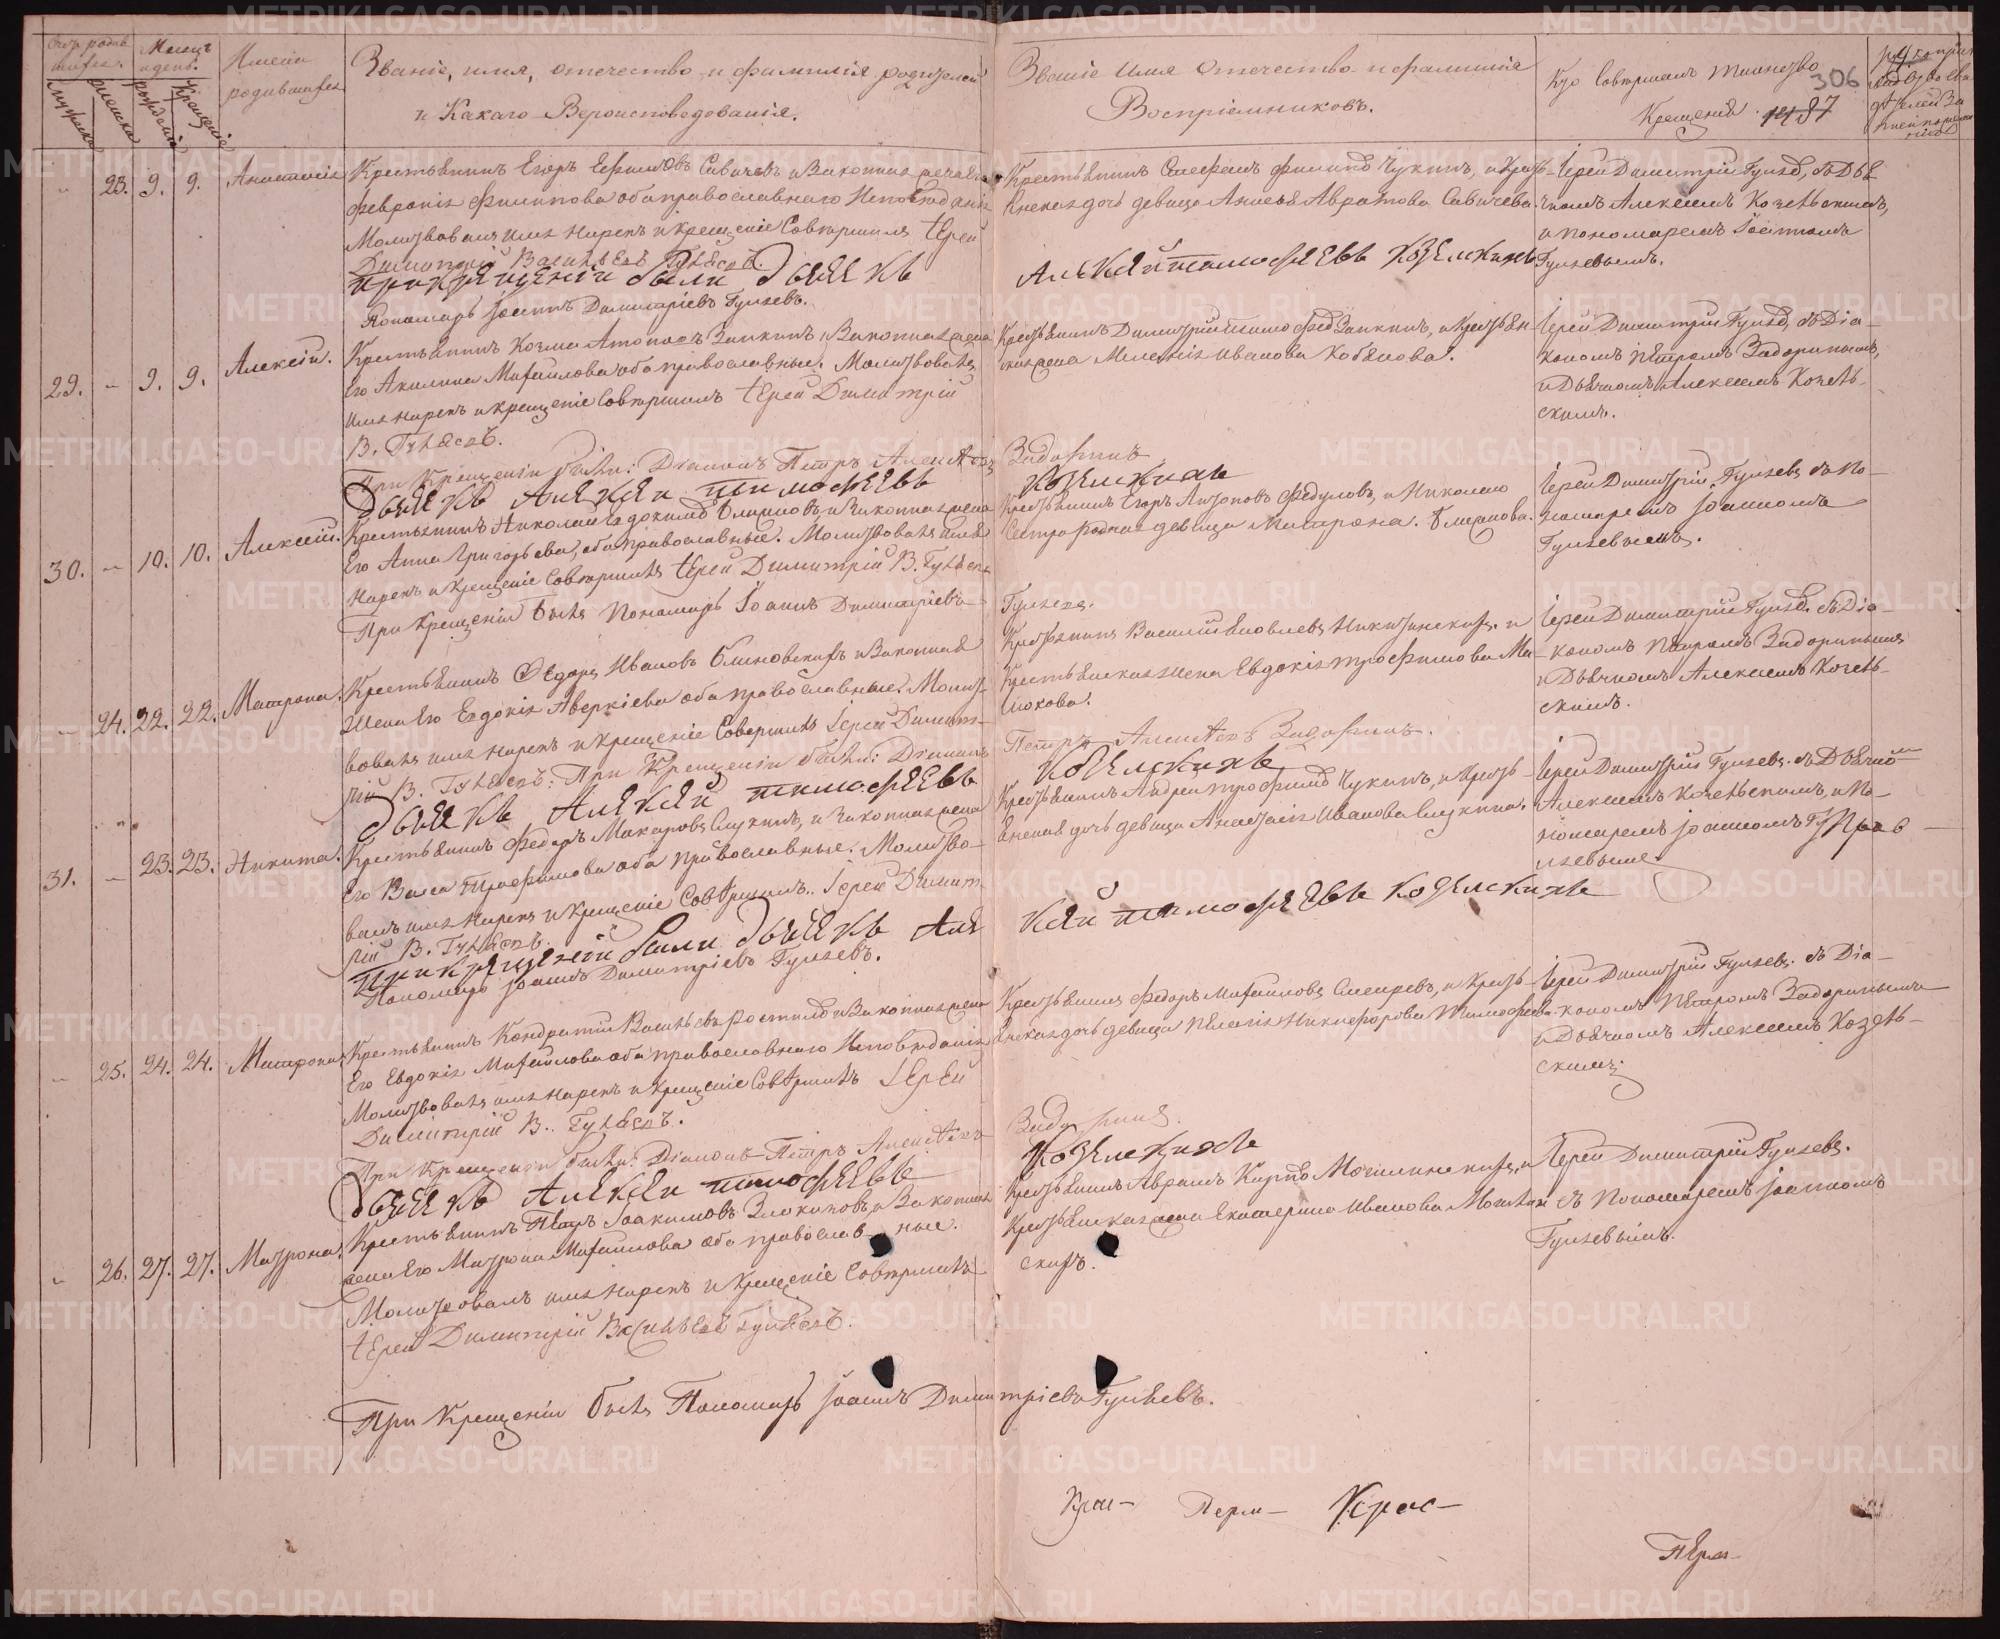 Счетъ родив
шихся.
Мѣсяцъ
и день.
мужеска
женска
рожденія
Крещенія
Имена
родившихся
Званіе, имя, отечество и фамилія родителей
и Какаго Вероисповедованія.
Званіе Имя Отечество и фамилія
Воспріемниковъ.
Кто Совершалъ таинство
Крещенія
306
87
23. 9. 9. Анастасія
Крестьянинъ Егоръ Ефимовъ Савичевъ и Законная жена Его
Февронія Филипова оба православнаго Исповѣданія
Молитвовалъ имя нарекъ и крещеніе Совершилъ Іерей
Димитрій Васильевъ Гуляевъ.
при крещеніи были Дьячекъ
Пономарь Іоаннъ Димитріевъ Гуляевъ.
Крестьянинъ Стефанъ Филиповъ Чукинъ, и Кресть-
янская дочь девица Анисья Авратова Савичева.
Алексей тимофеевъ Козелскихъ
Іерей Димитрій Гуляевъ, съ Дья
чкомъ Алексеемъ Козельскимъ,
и пономаремъ Іоанномъ
Гуляевымъ.
29. 9. 9. Алексѣй.
Крестьянинъ Козма Заикинъ и Законная жена
Его Акилина Михайлова оба православные. Молитвовалъ
имя нарекъ и крещеніе Совершилъ Іерей Димитрій
В. Гуляевъ.
При Крещеніи были: Діаконъ Петръ Алексѣевъ
Дьячекъ Алексей тимофеевъ
Крестьянинъ Димитрій Тимофеевъ Заикинъ, и Крестьян
ская жена Меланія Иванова Кобякова.
Задоринъ
Козелскихъ
Іерей Димитрій Гуляевъ, съ Діа-
кономъ Петромъ Задоринымъ,
и Дьячкомъ Алексеемъ Козель-
скимъ.
30. 10. 10. Алексѣй.
Крестьянинъ Николай Евдокимовъ Блиновъ, и Законная жена
Его Анна Григорьева, оба православные. Молитвовалъ имя
Нарекъ и Крещеніе Совершилъ Іерей Димитрій В. Гуляевъ
При Крещеніи былъ Пономарь Іоаннъ Димитріевъ
Крестьянинъ Егоръ Федуловъ, и Николаю
Сестра Родная девица Матрона. Блинова.
Гуляевъ.
Іерей Димитрій Гуляевъ съ По-
номаремъ Іоанномъ
Гуляевымъ.
24. 22. 22. Матрона.
Крестьянинъ Федоръ Ивановъ Блиновскихъ и Законная
Жена Его Евдокія Аверкіева оба православные. Молит-
вовалъ имя нарекъ и крещеніе Совершилъ Іерей Димит-
рій В. Гуляевъ: При Крещеніи были: Діаконъ
Дьячекъ Алексей тимофеевъ
Крестьянинъ Василій Яковлевъ Никитинскихъ. и
Крестьянская жена Евдокія трофимова Ма-
люкова.
Петръ Алексѣевъ Задоринъ.
Козелскихъ
Іерей Димитрій Гуляевъ. съ Діа-
кономъ Петромъ Задоринымъ
и Дьячкомъ Алексеемъ Козель-
скимъ.
31. 23. 23. Никита.
Крестьянинъ Федоръ Макаровъ Слукинъ, и Законная жена
Его Васса Трофимова оба православные. Молитво-
валъ имя Нарекъ и Крещеніе Совершилъ. Іерей Димит
рій В. Гуляевъ.
При крещеніи были дьячекъ Але
Пономарь Іоаннъ Димитріевъ Гуляевъ.
Крестьянинъ Андрей трофимовъ Чукинъ, и Кресть-
янская дочь девица Анастасія Иванова Слукина.
ксей тимофеевъ Козелскихъ
Іерей Димитрій Гуляевъ. съ Дьячко
Алексеемъ Козельскимъ, и По-
номаремъ Іоанномъ Гу
ляевымъ.
25. 24. 24. Матрона
Крестьянинъ Кондратій Васильевъ и Законная жена
Его Евдокія Михайлова оба православнаго Исповѣданія
Молитвовалъ имя нарекъ и Крещеніе Совершилъ Іерей
Димитрій В. Гуляевъ.
При Крещеніи были: Діаконъ Петръ Алексѣевъ
Дьячекъ Алексей тимофеевъ
Крестьянинъ Федоръ Михайловъ и Кресть-
янская дочь девица Пелагія Никифорова Тимофеева
Задоринъ.
Козелскихъ
Іерей Димитрій Гуляевъ. съ Діа-
кономъ Петромъ Задоринымъ
и Дьячкомъ Алексеемъ Козель-
скимъ.
26. 27. 27. Матрона.
Крестьянинъ Петръ Іоакимовъ Злоказовъ, и Законная
жена Его Матрона Михайлова оба православ-ные.
Молитвовалъ имя Нарекъ и Крещеніе Совершилъ
Іерей Димитрій Васильевъ Гуляевъ.
При Крещеніи былъ Пономарь Іоаннъ Димитріевъ Гуляевъ.
Крестьянинъ Авраамъ Карповъ и
Крестьянская жена Екатерина Иванова
скихъ.
Іерей Димитрій Гуляевъ.
съ Пономаремъ Іоанномъ
Гуляевымъ.
Крас-
Перм-
Крас-
Перм-